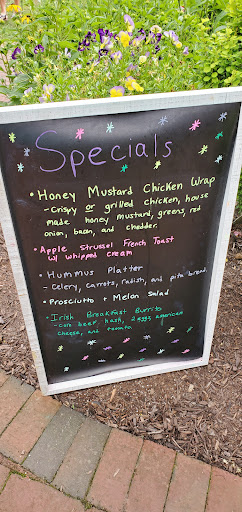 Specials
• Honey Mustard Chicken Wrap
- Crispy or grilled chicken, house
made honey mustard, greens, red
onion, bacon, and cheddar.
• Apple Strussel French Toast
w/ whipped cream
• Hummus Platter
- Celery, carrots, radish, and pita bread
• Prosciutto + Melon Salad
• Irish Breakfast Burrito
- corn beef hash, 2 eggs, american
cheese, and tomato.